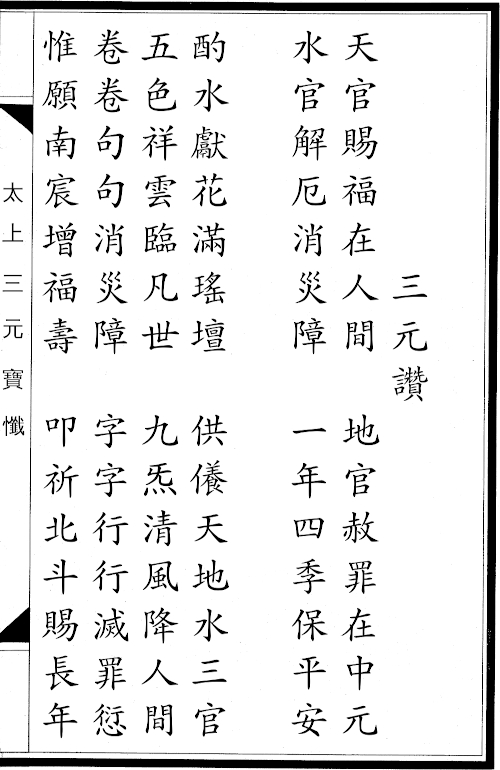 三元讚
天官賜福在人間　地官赦罪在中元
水官解厄消災障　一年四季保平安
酌水獻花滿瑤壇　供養天地水三官
五色祥雲臨凡世　九炁清風降人間
卷卷句句消災障　字字行行滅罪愆
惟願南宸增福壽　叩祈北斗賜長年
太上三元寶懺